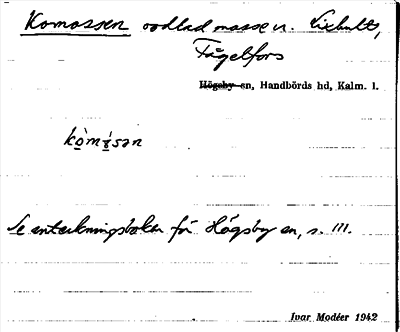 Komossen odlad mosse n. Lixhult,
Fågelfors
Högsby sn, Handbörds hd, Kalm. l.
kòmɔ̀sən
Se anteckningsboken för Högsby sn, s. 111.
Ivar Modéer 1942